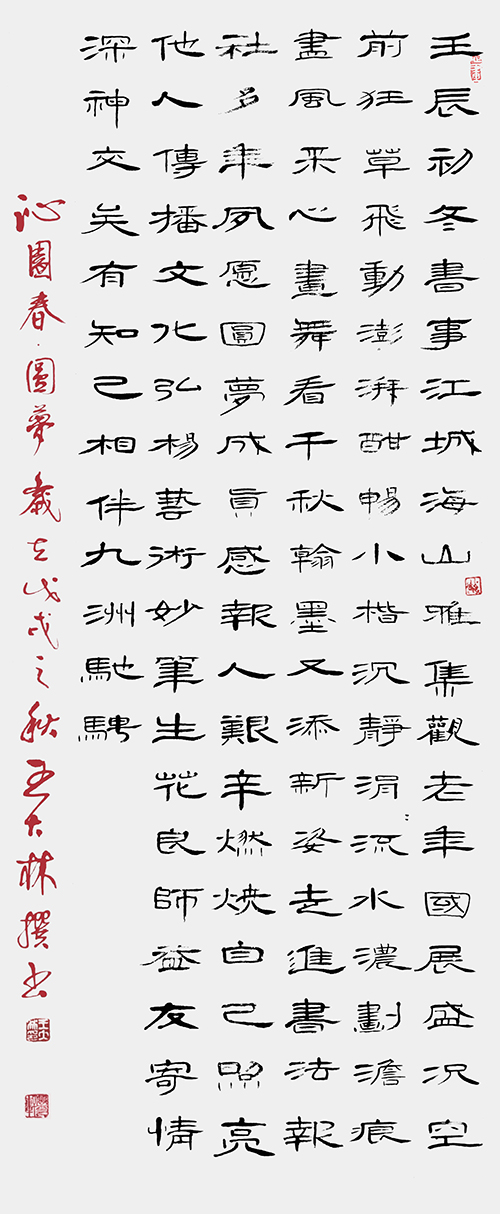 壬辰初冬書事江城海山雅集觀老年國展盛況空
前狂草飛動澎湃酣暢小楷沉靜涓流水濃劃澹痕
盡風采心畫舞看千秋翰墨又添新姿走進書法報
社多年夙愿圓夢成員感報人艱辛燃燒自己照亮
他人傳播文化弘楊藝術妙筆生花良師益友寄情
深神交矣有知己相伴九洲馳騁
沁園春·圓夢 歲在戊戌之秋王大林撰書